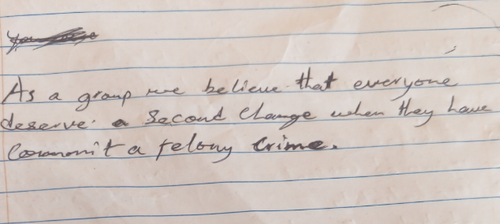 As a group we believe that everyone
deserve a Second Change when they have
Commmit a felony Crime.